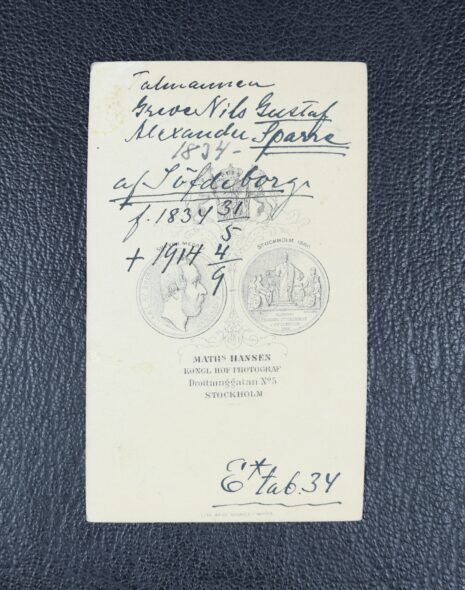 Talmannen
Greve Nils Gustaf
Alexander Sparre
1834-
af Söfdeborg.
f. 1834 31/5
+ 1914 4/9
STOCKHOLM 1866
MATHS HANSEN
KONGL HOF PHOTOGRAF
Drottninggatan No 5
STOCKHOLM
E* tab. 34